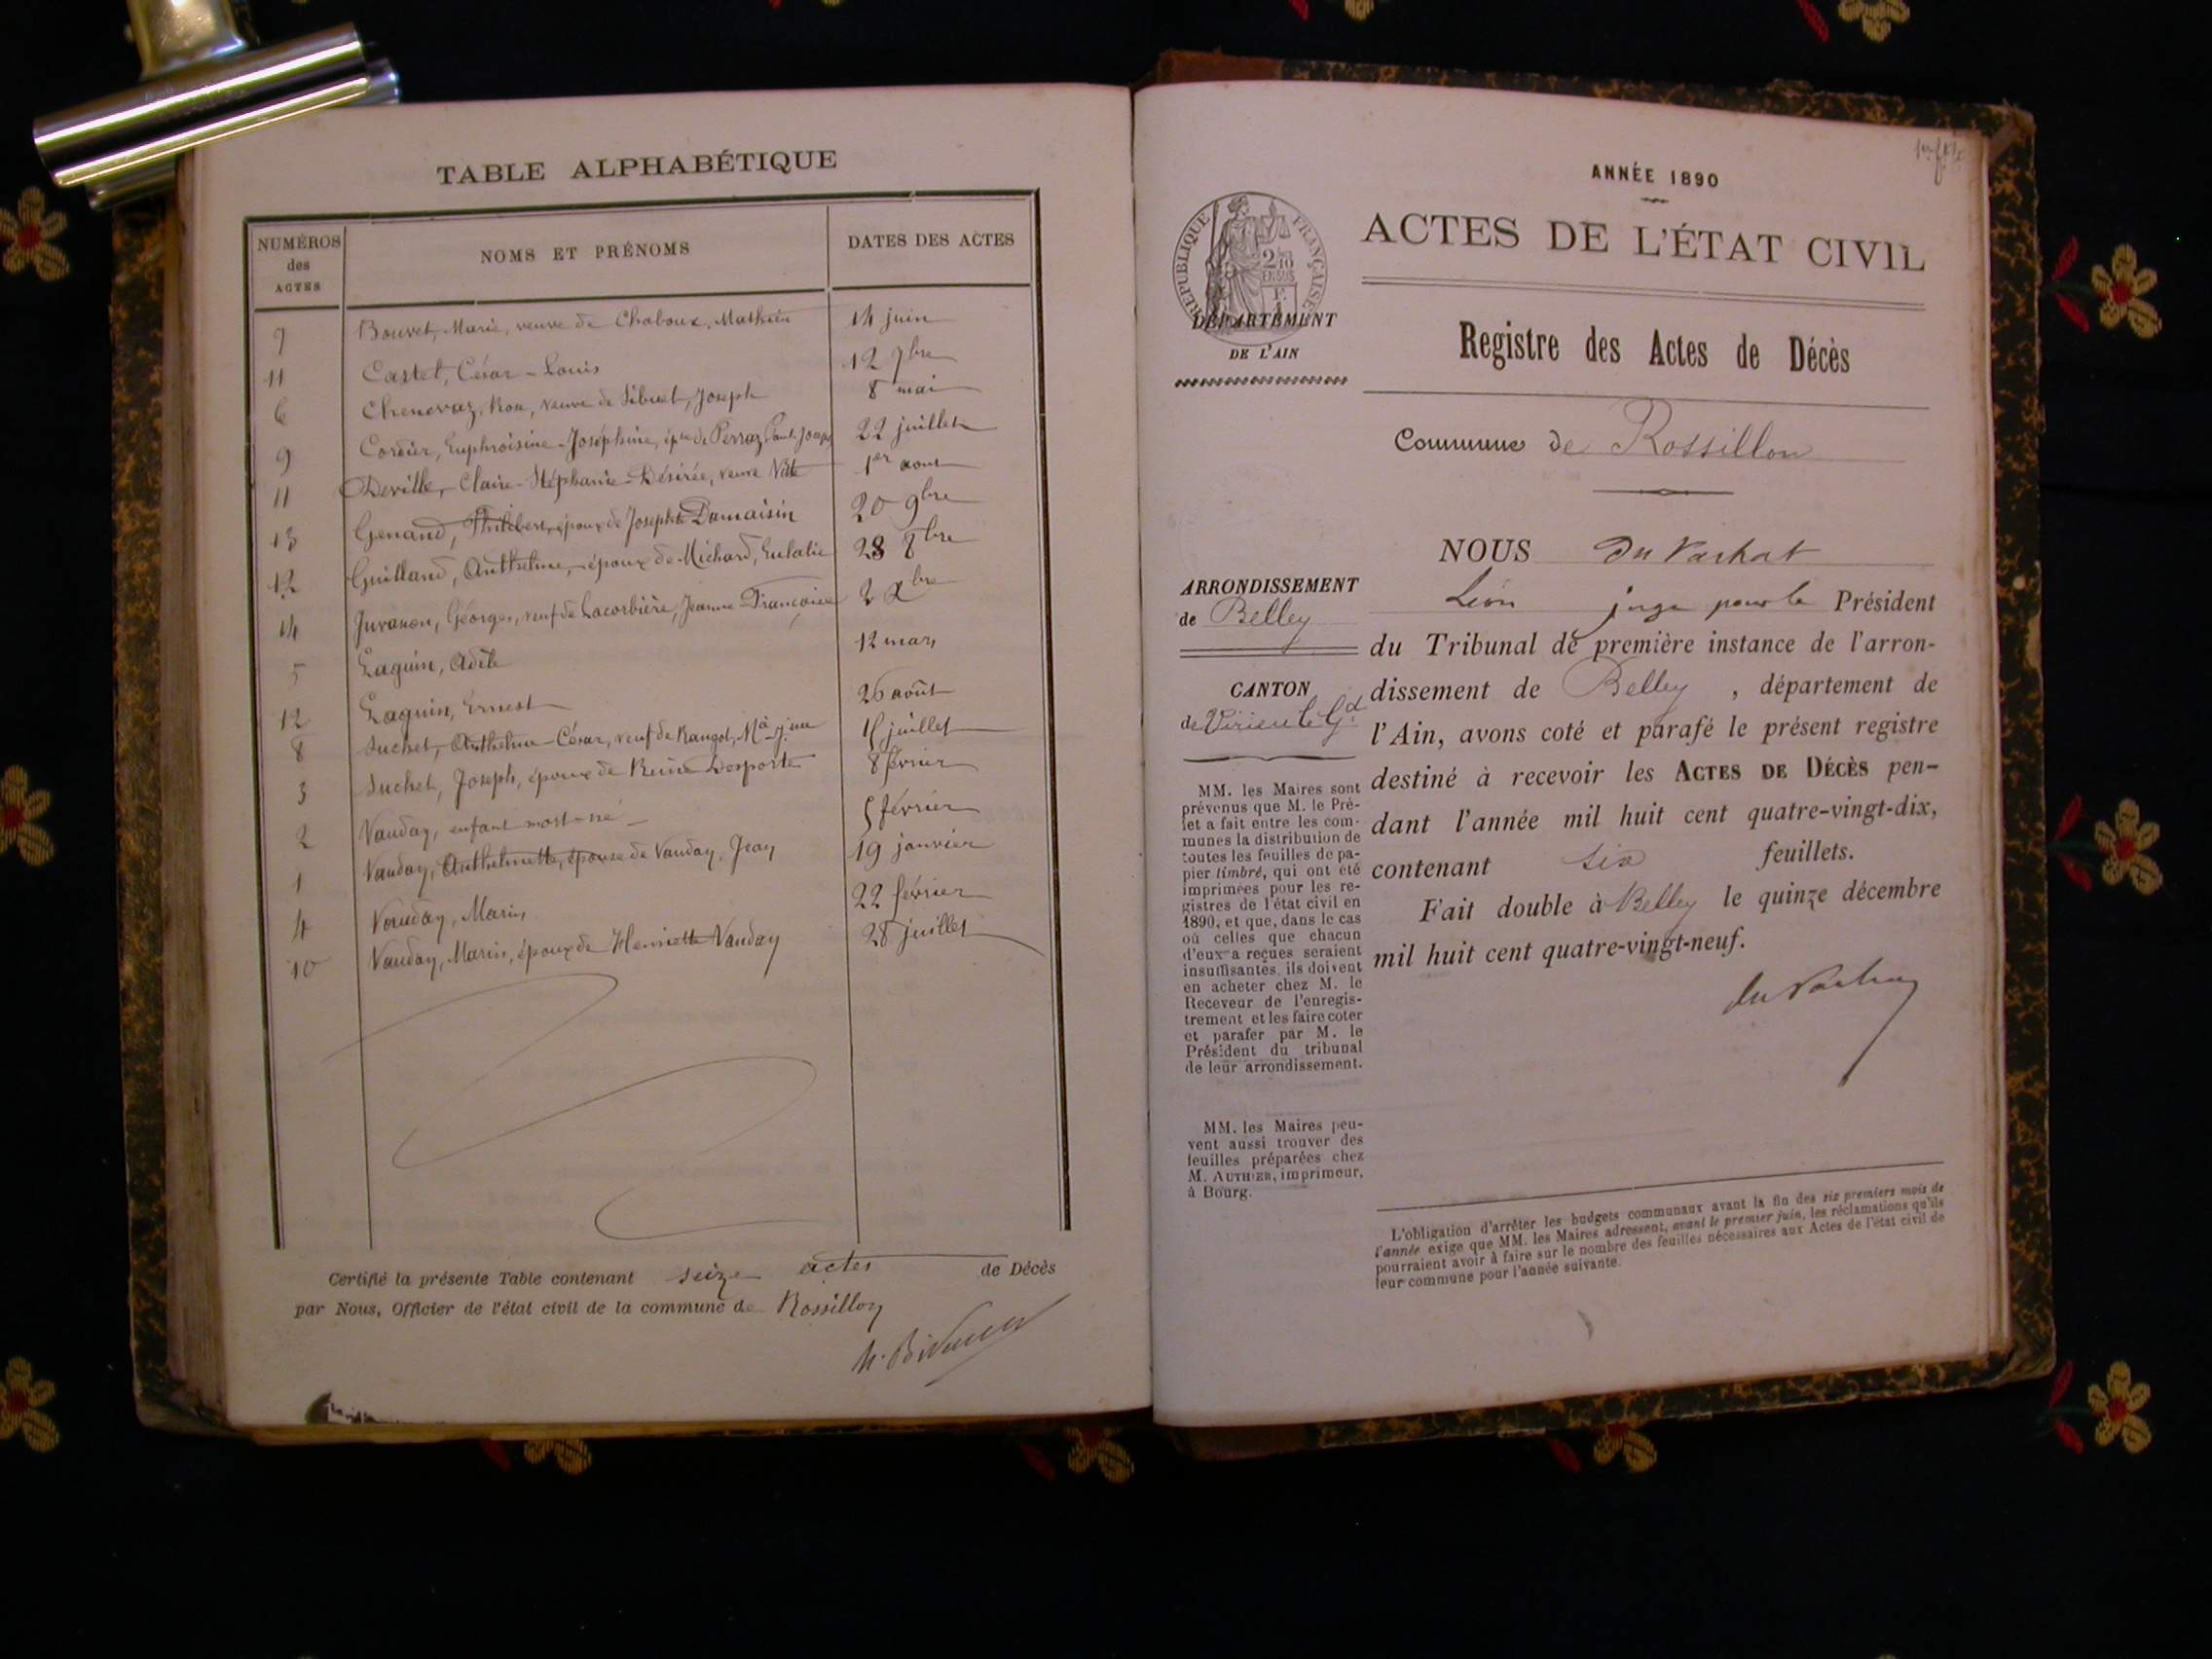 TABLE ALPHABÉTIQUE
NUMÉROS des ACTES
NOMS ET PRÉNOMS
DATES DES ACTES
7 Bouvet, Marie, veuve de Chaboux, Mathieu 14 juin
11 Castet, César-Louis 12 7bre
6 Chenevaz, veuve de Sibuet, Joseph 8 mai
9 Cordier, Euphroisine-Joséphine, épse de Perraz 22 juillet
11 Deville, Claire-Stéphanie-Désirée, veuve 1er aout
13 Genand, Philibert, époux de Josephte Damaisin 20 9bre
12 Guilland, Anthelme, époux de Michard, Eulalie 28 8bre
14 Juvanon, Georges, veuf de Lacorbière, Jeanne Françoise 2 Xbre
5 Laguin, Adèle 12 mars
12 Laguin, Ernest 26 août
8 Suchet, Anthelme-César, veuf de Rangot, juillet
3 Suchet, Joseph, époux de Reine Desporte 8 février
2 Vauday, enfant mort-né 5 février
1 Vauday, Anthelmette, épouse de Vauday, Jean 19 janvier
4 Vauday, Marin 22 février
10 Vauday, Marin, époux de Henriette Vauday 28 juillet
Certifié la présente Table contenant seize actes de Décès
par Nous, Officier de l'état civil de la commune de Rossillon
ANNÉE 1890
RÉPUBLIQUE FRANÇAISE
2/10 EN SUS
ACTES DE L'ÉTAT CIVIL
DÉPARTEMENT
DE L'AIN
Registre des Actes de Décès
Commune de Rossillon
ARRONDISSEMENT
de Belley
CANTON
de Virieu le Gd
MM. les Maires sont
prévenus que M. le Pré-
fet a fait entre les com-
munes la distribution de
toutes les feuilles de pa-
pier timbré, qui ont été
imprimées pour les re-
gistres de l'état civil en
1890, et que, dans le cas
où celles que chacun
d'eux a reçues seraient
insuffisantes, ils doivent
en acheter chez M. le
Receveur de l'enregis-
trement et les faire coter
et parafer par M. le
Président du tribunal
de leur arrondissement.
MM. les Maires peu-
vent aussi trouver des
feuilles préparées chez
M. AUTHIER, imprimeur,
à Bourg.
NOUS Du Vachat
Léon juge pour le Président
du Tribunal de première instance de l'arron-
dissement de Belley, département de
l'Ain, avons coté et parafé le présent registre
destiné à recevoir les ACTES DE DÉCÈS pen-
dant l'année mil huit cent quatre-vingt-dix,
contenant six feuillets.
Fait double à Belley le quinze décembre
mil huit cent quatre-vingt-neuf.
du Vachat
L'obligation d'arrêter les budgets communaux avant la fin des six premiers mois de
l'année exige que MM. les Maires adressent, avant le premier juin, les réclamations qu'ils
pourraient avoir à faire sur le nombre des feuilles nécessaires aux Actes de l'état civil de
leur commune pour l'année suivante.